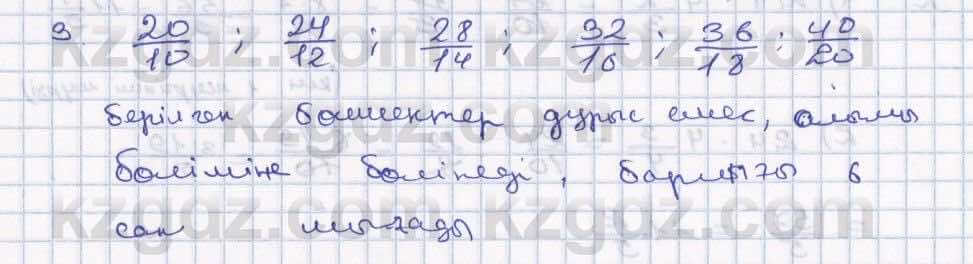 3. 20/10 ; 24/12 ; 28/14 ; 32/16 ; 36/18 ; 40/20
берілген бөлшектер дұрыс емес, алымы
бөліміне бөлінеді, барлығы 6
сан шығады
kzgdz.com